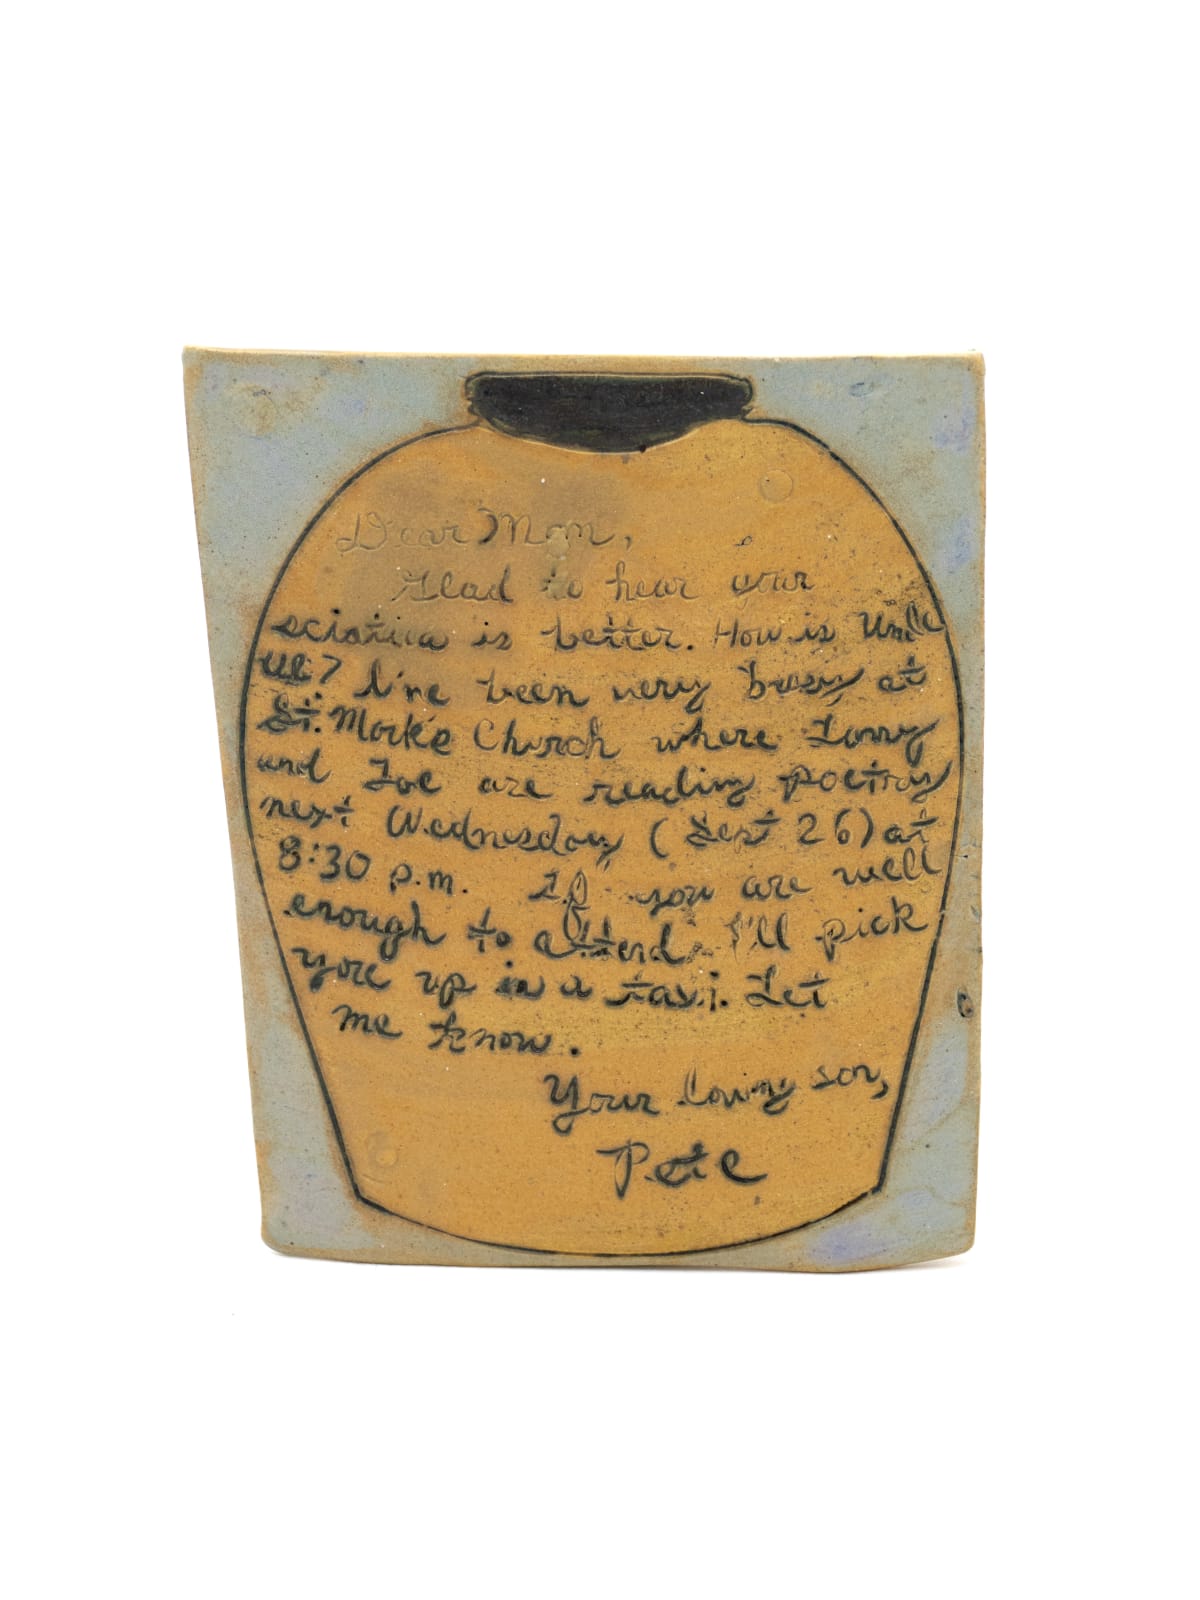 Dear Mom,
Glad to hear your
sciatica is better. How is Uncle
Al? I've been very busy at
St. Mark's Church where Larry
and Joe are reading poetry
next Wednesday (Sept 26) at
8:30 p.m. If you are well
enough to attend I'll pick
you up in a taxi. Let
me know.
Your loving son,
Pete